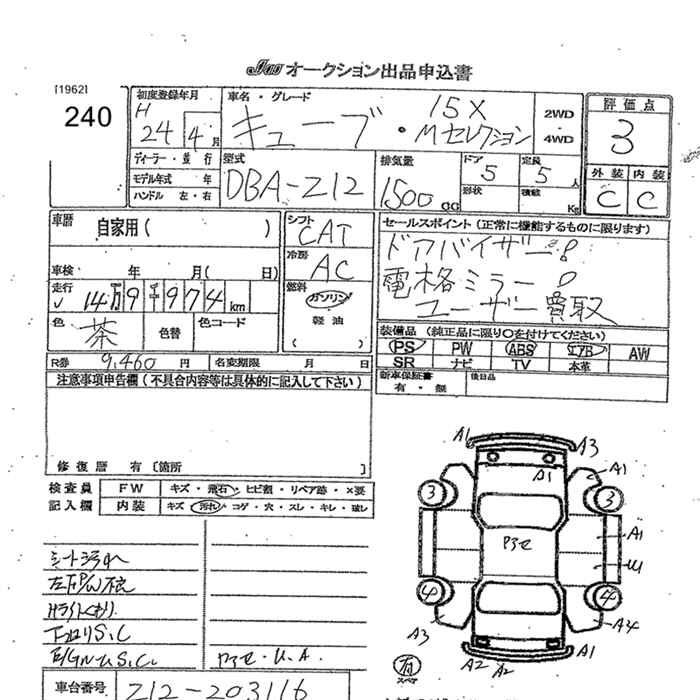 JU オークション出品申込書
[1962]
240
初度登録年月
H 24 4月
車名・グレード
15X
キューブ・Mセレクション
2WD
・
4WD
評価点
3
外装 内装
C C
ディーラー・並行
モデル年式 年
ハンドル 左・右
型式
DBA-Z12
排気量
1500 CC
ドア
5
形状
定員
5人
積載
Kg
車歴
自家用( )
車検 年 月( 日)
走行
✓ 14万9千974km
色
茶
色替
色コード
シフト
CAT
冷房
AC
燃料
ガソリン
軽油
( )
セールスポイント(正常に機能するものに限ります)
ドアバイザー!
電格ミラー!
ユーザー買取
装備品(純正品に限り○を付けてください)
PS PW ABS エアB AW
SR ナビ TV 本革
新車保証書
有・無
後日品
R券 9,460円
名変期限 月 日
注意事項申告欄(不具合内容等は具体的に記入して下さい)
修復歴 有〔箇所 〕
検査員 FW キズ・飛石・ヒビ割・リペア跡・×要
記入欄 内装 キズ・汚れ・コゲ・穴・スレ・キレ・破レ
シート汚れ
左FP/W不良
Hライトくもり
下回りS,C
E/G内U.S,C
P3セ・U.A
車台番号
Z12-203116
A1 A3
A1 A1
3 3
P3セ
A1
U1
4 4
A3 A34
A2 A2 A1
有
スペア